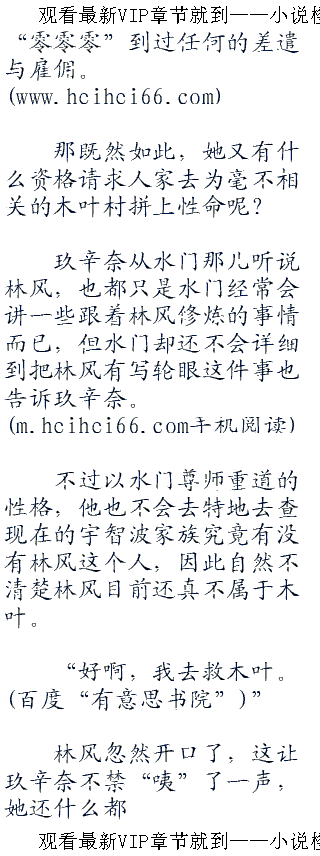 观看最新VIP章节就到——小说
“零零零”到过任何的差遣
与雇佣。
(www.hcihci66.com)
那既然如此，她又有什
么资格请求人家去为毫不相
关的木叶村拼上性命呢？
玖辛奈从水门那儿听说
林风，也都只是水门经常会
讲一些跟着林风修炼的事情
而已，但水门却还不会详细
到把林风有写轮眼这件事也
告诉玖辛奈。
(m.hcihci66.com手机阅读)
不过以水门尊师重道的
性格，他也不会去特地去查
现在的宇智波家族究竟有没
有林风这个人，因此自然不
清楚林风目前还真不属于木
叶。
“好啊，我去救木叶。
(百度“有意思书院”)”
林风忽然开口了，这让
玖辛奈不禁“咦”了一声，
她还什么都
观看最新VIP章节就到——小说